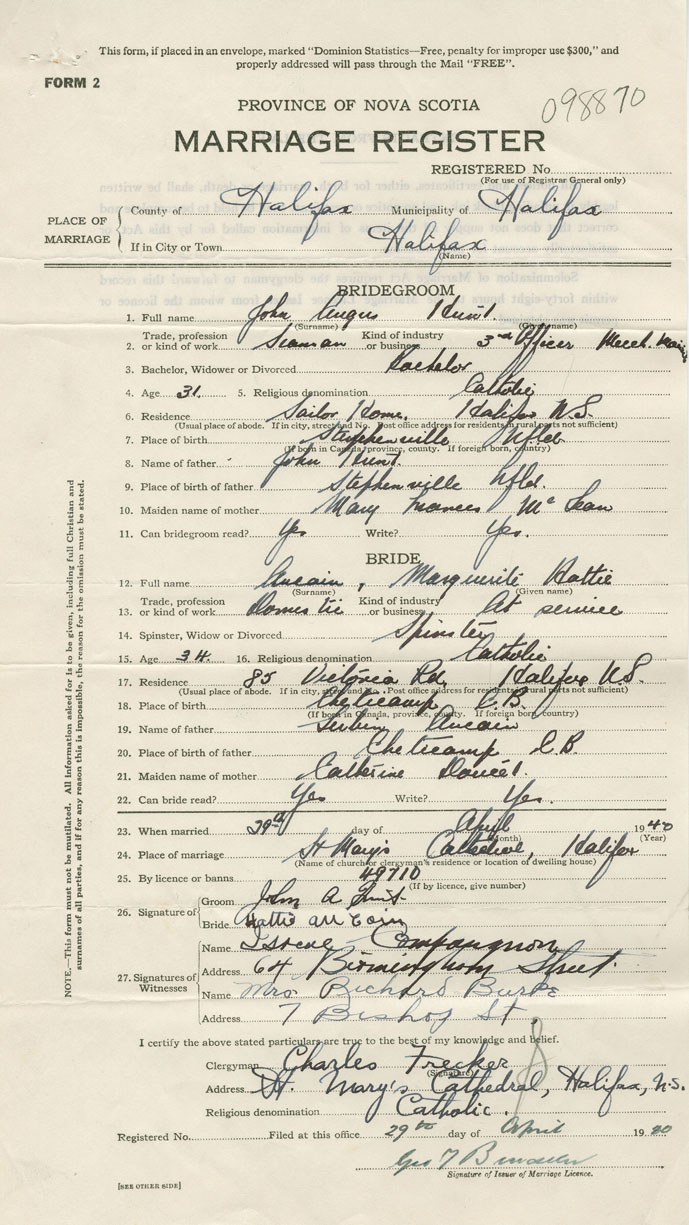 This form, if placed in an envelope, marked "Dominion Statistics—Free, penalty for improper use $300," and
properly addressed will pass through the Mail "FREE".
FORM 2
PROVINCE OF NOVA SCOTIA
098870
MARRIAGE REGISTER
REGISTERED No.
(For use of Registrar General only)
PLACE OF MARRIAGE
County of Halifax Municipality of Halifax
If in City or Town Halifax
(Name)
BRIDEGROOM
1. Full name John Angus Hunt.
(Surname) (Given name)
2. Trade, profession or kind of work Seaman Kind of industry or business 3rd Officer Merch.
3. Bachelor, Widower or Divorced Bachelor
4. Age 31. 5. Religious denomination Catholic
6. Residence Sailor Home, Halifax N.S.
(Usual place of abode. If in city, street and No. Post office address for residents in rural parts not sufficient)
7. Place of birth Stephenville Nfld.
(If born in Canada, province, county. If foreign born, country)
8. Name of father John Hunt.
9. Place of birth of father Stephenville Nfld.
10. Maiden name of mother Mary Frances McLean
11. Can bridegroom read? Yes Write? Yes.
BRIDE
12. Full name Aucoin, Marguerite Hattie
(Surname) (Given name)
13. Trade, profession or kind of work Domestic Kind of industry or business At service
14. Spinster, Widow or Divorced Spinster
15. Age 34. 16. Religious denomination Catholic
17. Residence 85 Victoria Rd, Halifax N.S.
(Usual place of abode. If in city, street and No. Post office address for residents in rural parts not sufficient)
18. Place of birth Cheticamp C.B.
(If born in Canada, province, county. If foreign born, country)
19. Name of father Aucoin
20. Place of birth of father Cheticamp C.B
21. Maiden name of mother Catherine Doucet.
22. Can bride read? Yes Write? Yes.
23. When married 29th day of April 1940
(Month) (Year)
24. Place of marriage St Mary's Cathedral, Halifax
(Name of church or clergyman's residence or location of dwelling house)
25. By licence or banns 49710
(If by licence, give number)
26. Signature of
Groom John A Hunt
Bride Hattie Au Coin
27. Signatures of Witnesses
Name
Address 64 Birmingham Street.
Name Mrs Richard Burke
Address 7 Bishop St
I certify the above stated particulars are true to the best of my knowledge and belief.
Clergyman Charles Frecker
(Signature)
Address St. Mary's Cathedral, Halifax, N.S.
Religious denomination Catholic.
Registered No. Filed at this office 29th day of April 1940
Geo T
Signature of Issuer of Marriage Licence.
[SEE OTHER SIDE]
NOTE.—This form must not be mutilated. All information asked for is to be given, including full Christian and
surnames of all parties, and if for any reason this is impossible, the reason for the omission must be stated.